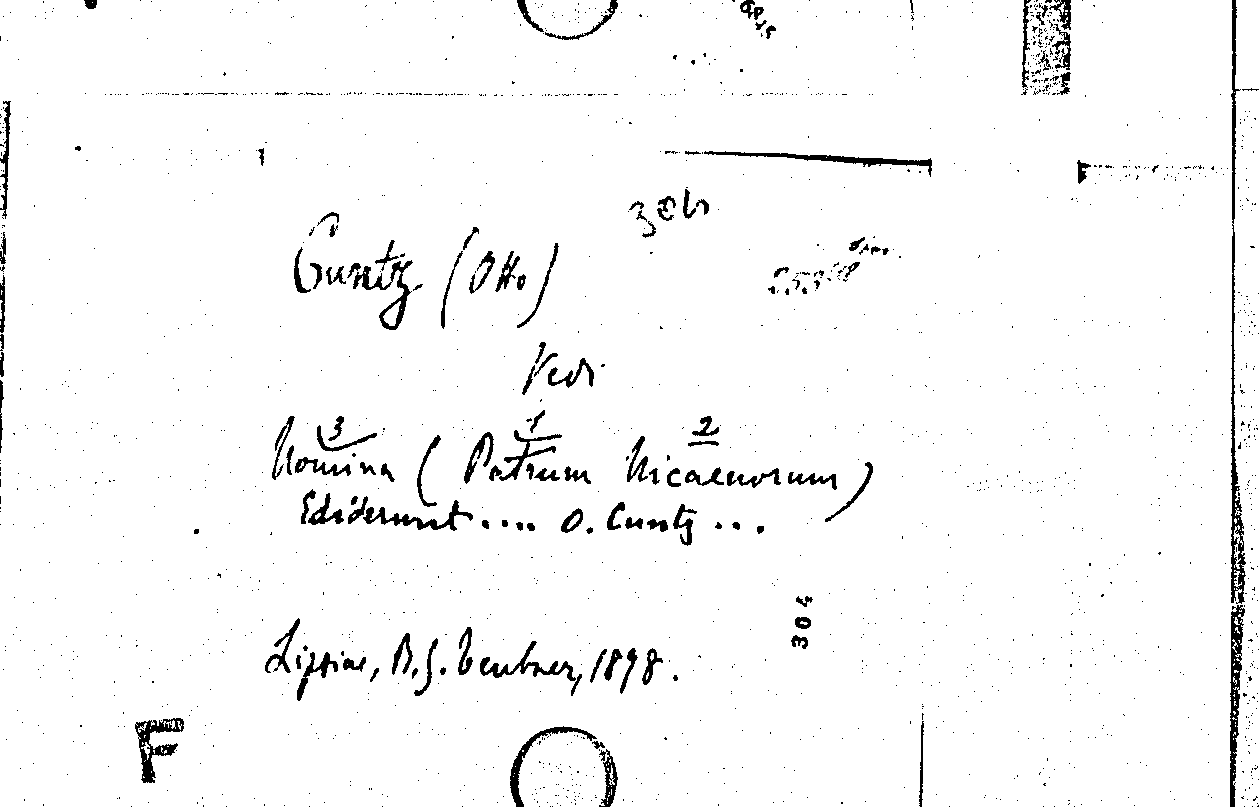 Cuntz (Otto)
Vedi
3 1 2
Nomina ( Patrum Nicaenorum )
Ediderunt .... O. Cuntz ...
304
Lipsiae, B. G. Teubner, 1898.
F